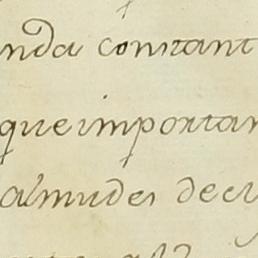 nda constant
que importan
almudes de cu